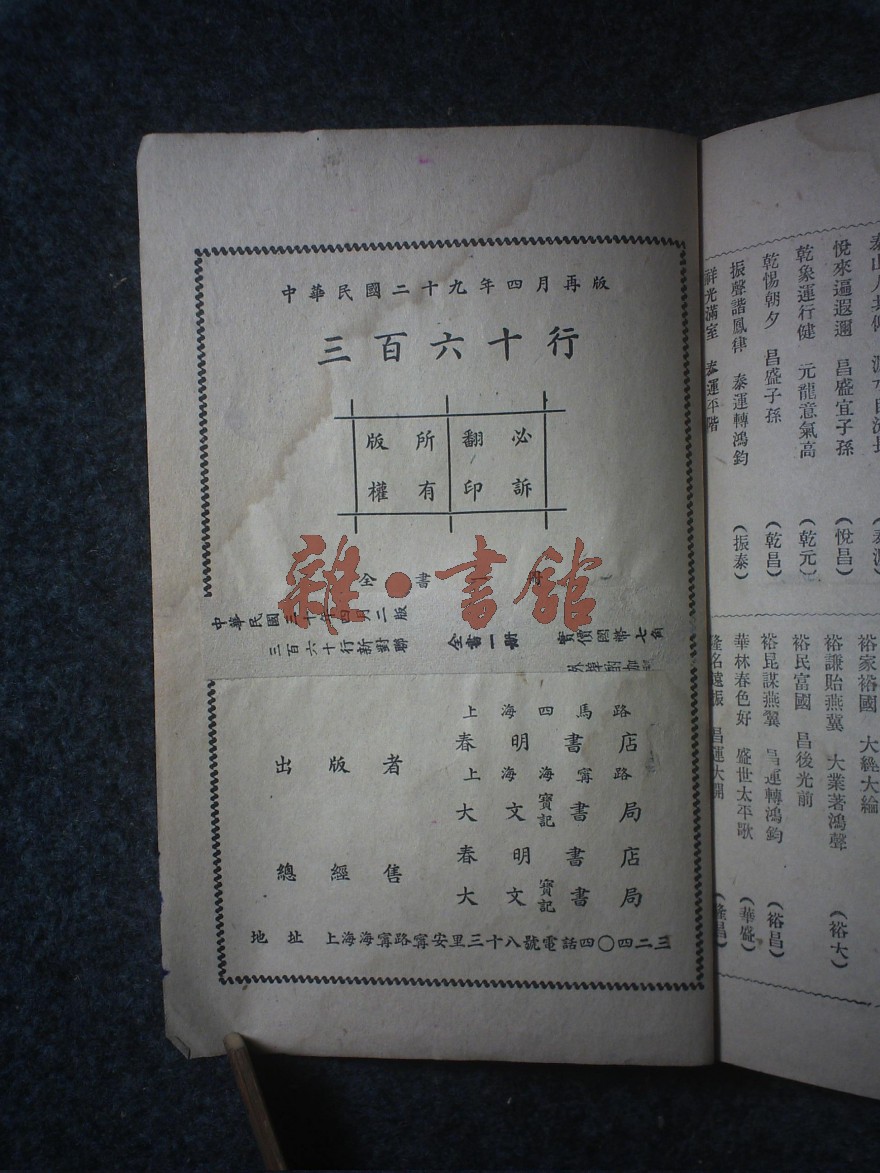 中華民國二十九年四月再版
三百六十行
版權所有 翻印必訴
全書
雜·書館
中華民國三十年四月二版
三百六十行新對聯
全書一册
實價國幣七角
出版者
上海四馬路
春明書店
上海海甯路
大文寶記書局
總經售
春明書店
大文寶記書局
地址 上海海甯路甯安里三十八號電話四〇四二三
悅來邇遐邇 昌盛宜子孫 (悅昌)
乾象運行健 元龍意氣高 (乾元)
乾惕朝夕 昌盛子孫 (乾昌)
振聲諧鳳律 泰運轉鴻鈞 (振泰)
祥光滿室 泰運平階
裕家裕國 大綸
裕謙貽燕翼 大業著鴻聲 (裕大)
裕民富國 昌後光前
裕昆謀燕翼 昌運轉鴻鈞 (裕昌)
華林春色好 盛世太平歌 (華盛)
隆名遠振 昌運大開 (隆昌)